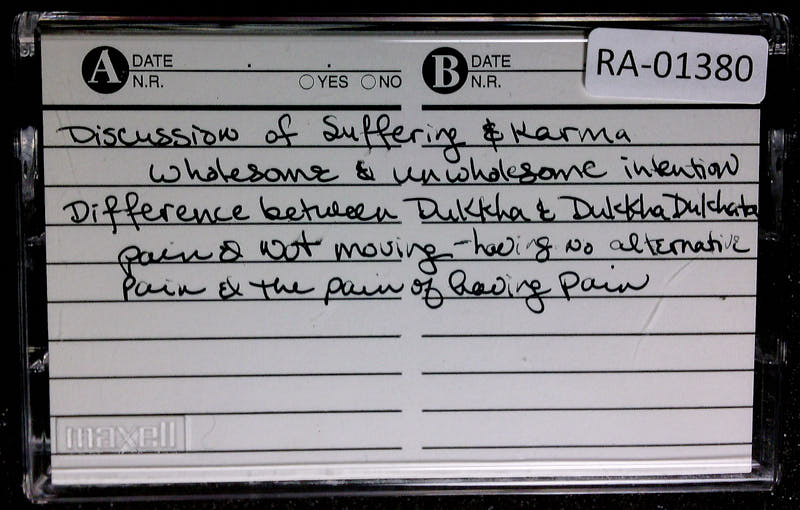 A DATE . . B DATE RA-01380
N.R. ○YES ○NO N.R.
Discussion of Suffering & Karma
wholesome & unwholesome intention
Difference between Dukkha & Dukkha Dukkhata
pain & not moving - having no alternative
pain & the pain of having pain
maxell